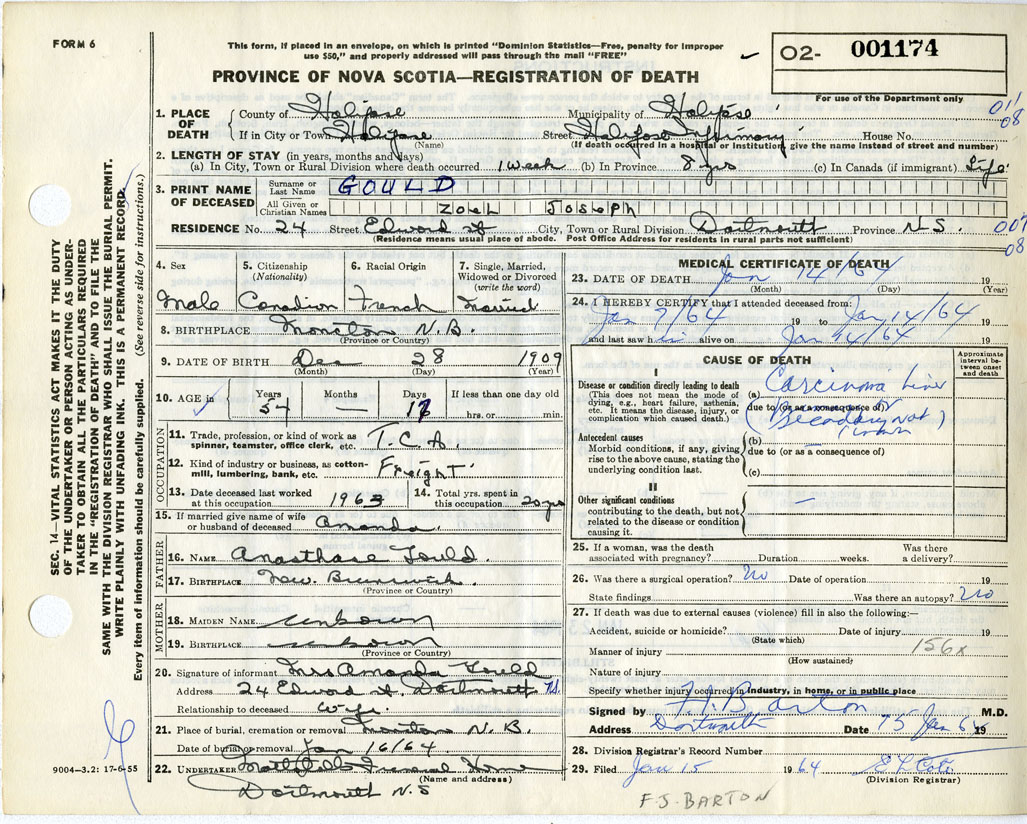 FORM 6
This form, if placed in an envelope, on which is printed "Dominion Statistics—Free, penalty for improper
use $50," and properly addressed will pass through the mail "FREE"
PROVINCE OF NOVA SCOTIA—REGISTRATION OF DEATH
02- 001174
For use of the Department only
1. PLACE OF DEATH
County of Halifax Municipality of Halifax
If in City or Town Halifax Street Halifax Infirmary House No.
(Name) (If death occurred in a hospital or institution, give the name instead of street and number)
011
08
2. LENGTH OF STAY (in years, months and days)
(a) In City, Town or Rural Division where death occurred 1 week (b) In Province 8 yrs (c) In Canada (if immigrant) Life
3. PRINT NAME OF DECEASED
Surname or Last Name GOULD
All Given or Christian Names ZOEL JOSEPH
RESIDENCE No. 24 Street Edward St City, Town or Rural Division Dartmouth Province N.S.
(Residence means usual place of abode. Post Office Address for residents in rural parts not sufficient)
08
4. Sex 5. Citizenship (Nationality) 6. Racial Origin 7. Single, Married, Widowed or Divorced (write the word)
Male Canadian French Married
8. BIRTHPLACE Moncton N.B.
(Province or Country)
9. DATE OF BIRTH Dec 28 1909
(Month) (Day) (Year)
10. AGE in Years 54 Months — Days 17 If less than one day old hrs. or min.
OCCUPATION
11. Trade, profession, or kind of work as spinner, teamster, office clerk, etc. T.C.A.
12. Kind of industry or business, as cotton-mill, lumbering, bank, etc. Freight
13. Date deceased last worked at this occupation 1963 14. Total yrs. spent in this occupation 20 yrs
15. If married give name of wife or husband of deceased Amanda
FATHER
16. NAME Anasthase Gould
17. BIRTHPLACE New Brunswick
(Province or Country)
MOTHER
18. MAIDEN NAME unknown
19. BIRTHPLACE unknown
(Province or Country)
20. Signature of informant Mrs Amanda Gould
Address 24 Edward St. Dartmouth N.S.
Relationship to deceased Wife
21. Place of burial, cremation or removal Moncton N.B.
Date of burial or removal Jan 16/64
22. UNDERTAKER Funeral Home
(Name and address)
Dartmouth N.S
MEDICAL CERTIFICATE OF DEATH
23. DATE OF DEATH Jan 14/64 19
(Month) (Day) (Year)
24. I HEREBY CERTIFY that I attended deceased from:
Jan 7/64 19 to Jan 14/64 19
and last saw him alive on Jan 14/64 19
CAUSE OF DEATH
Approximate interval between onset and death
I
Disease or condition directly leading to death
(This does not mean the mode of dying, e.g., heart failure, asthenia, etc. It means the disease, injury, or complication which caused death.)
(a) Carcinoma Liver
due to (or as a consequence of)
(Secondary not known)
Antecedent causes
Morbid conditions, if any, giving rise to the above cause, stating the underlying condition last.
(b) —
due to (or as a consequence of)
(c)
II
Other significant conditions
contributing to the death, but not related to the disease or condition causing it.
—
25. If a woman, was the death associated with pregnancy? Duration weeks. Was there a delivery?
26. Was there a surgical operation? No Date of operation 19
State findings Was there an autopsy? No
27. If death was due to external causes (violence) fill in also the following:—
Accident, suicide or homicide? Date of injury 19
(State which)
Manner of injury 156x
(How sustained)
Nature of injury
Specify whether injury occurred in industry, in home, or in public place
Signed by F.J. Barton M.D.
Address Dartmouth Date 15 Jan 64 19
28. Division Registrar's Record Number
29. Filed Jan 15 1964
(Division Registrar)
F. J. BARTON
9004—3.2: 17-6-55
SEC. 14—VITAL STATISTICS ACT MAKES IT THE DUTY
OF THE UNDERTAKER OR PERSON ACTING AS UNDER-
TAKER TO OBTAIN ALL THE PARTICULARS REQUIRED
IN THE "REGISTRATION OF DEATH" AND TO FILE THE
SAME WITH THE DIVISION REGISTRAR WHO SHALL ISSUE THE BURIAL PERMIT.
WRITE PLAINLY WITH UNFADING INK. THIS IS A PERMANENT RECORD.
Every item of information should be carefully supplied. (See reverse side for instructions.)